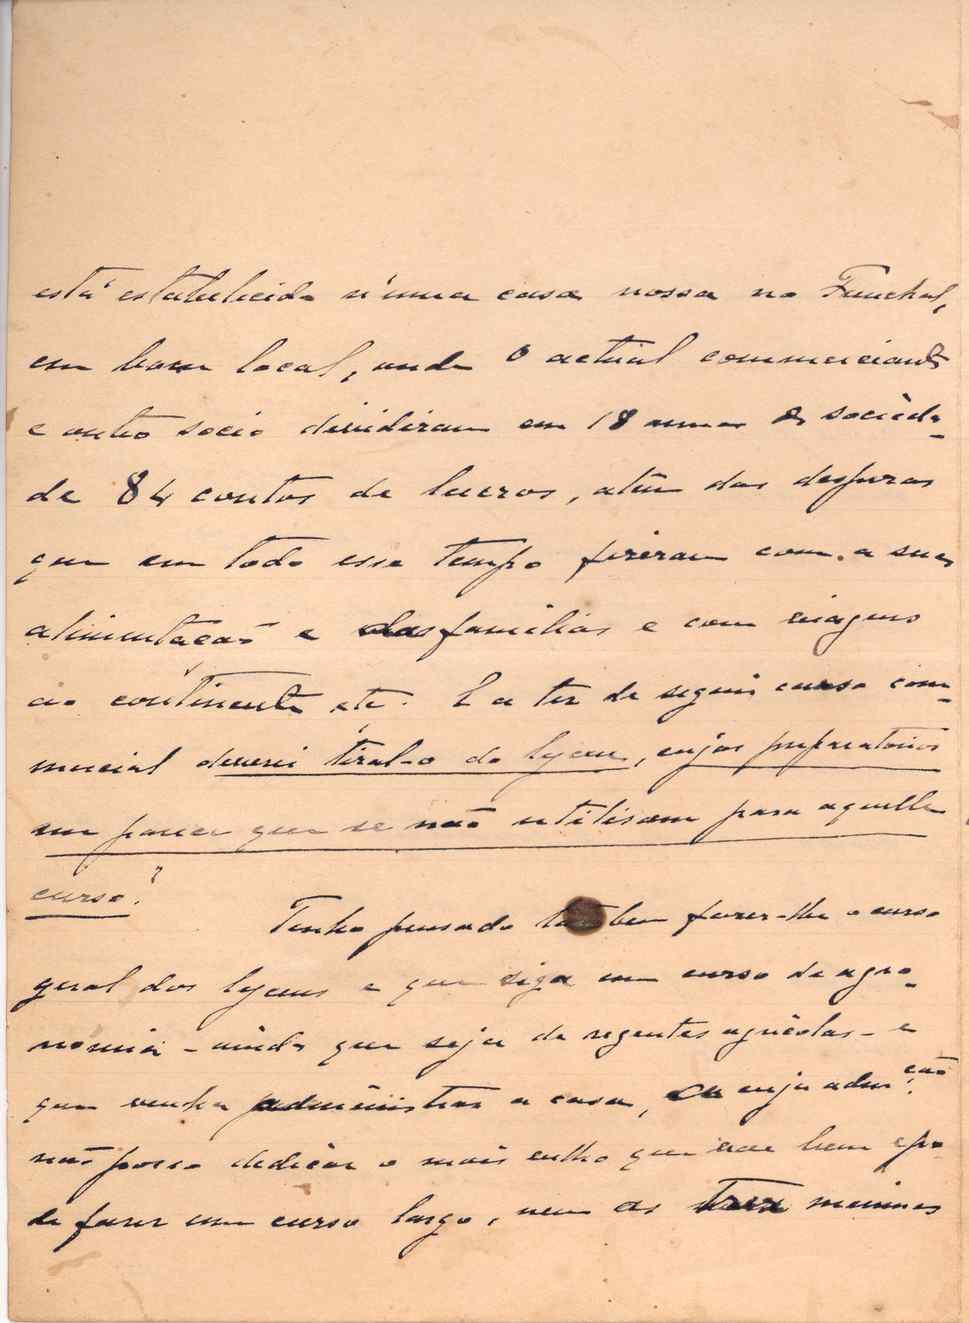 está estabelecido n'uma casa nossa no Funchal,
em bom local, onde o actual commerciante
e outro socio dividiram em 18 annos de socieda-
de 84 contos de lucros, além das despezas
que em todo esse tempo fizeram com a sua
alimentação e das familias e com viagens
ao continente etc. E a ter de seguir curso com-
mercial deverei tiral-o do lyceu, cujos preparatorios
me parece que se não utilisam para aquelle
curso?
Tenho pensado tambem fazer-lhe o curso
geral dos lyceus e que siga um curso de agro-
nomia - ainda que seja de regentes agricolas - e
que venha administrar a casa, a cuja admção
não posso dedicar o mais velho que vae bem e po-
de fazer um curso largo, nem as tres meninas